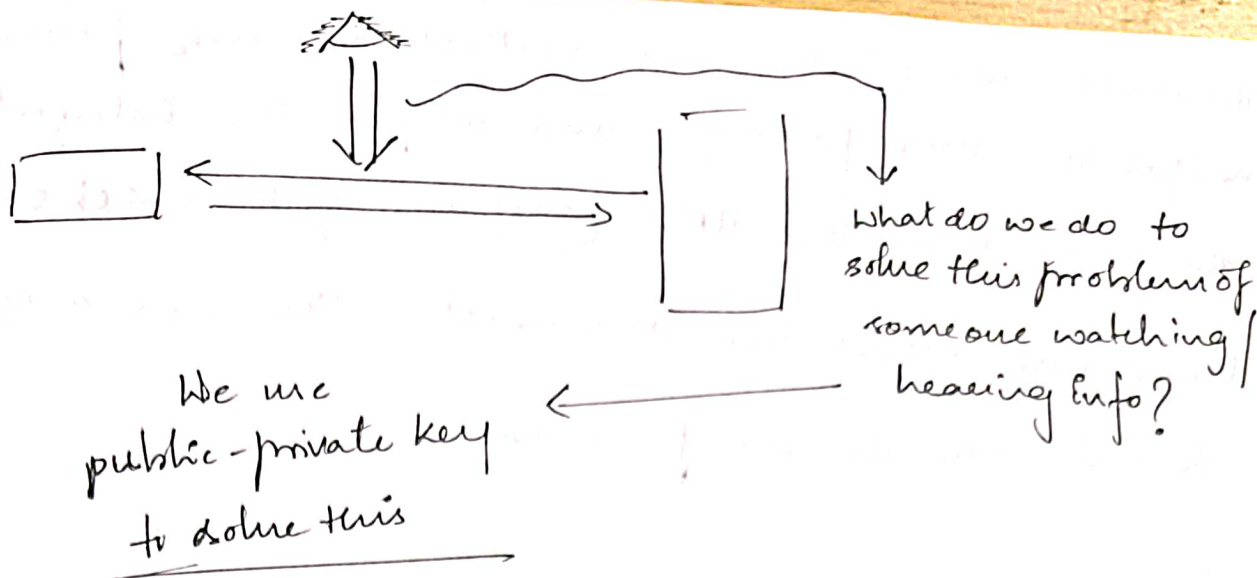 What do we do to
solve this problem of
someone watching/
hearing Info?
We use
public-private key
to solve this